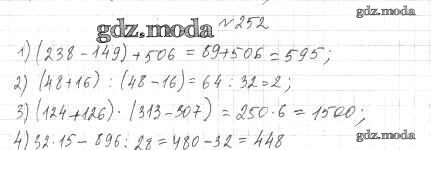 gdz.moda
gdz.moda №252
1) (238-149)+506 = 89+506 = 595;
2) (48+16) : (48-16) = 64 : 32 = 2;
3) (124+126) · (313-307) = 250·6 = 1500;
4) 32·15 - 896 : 28 = 480-32 = 448
gdz.moda